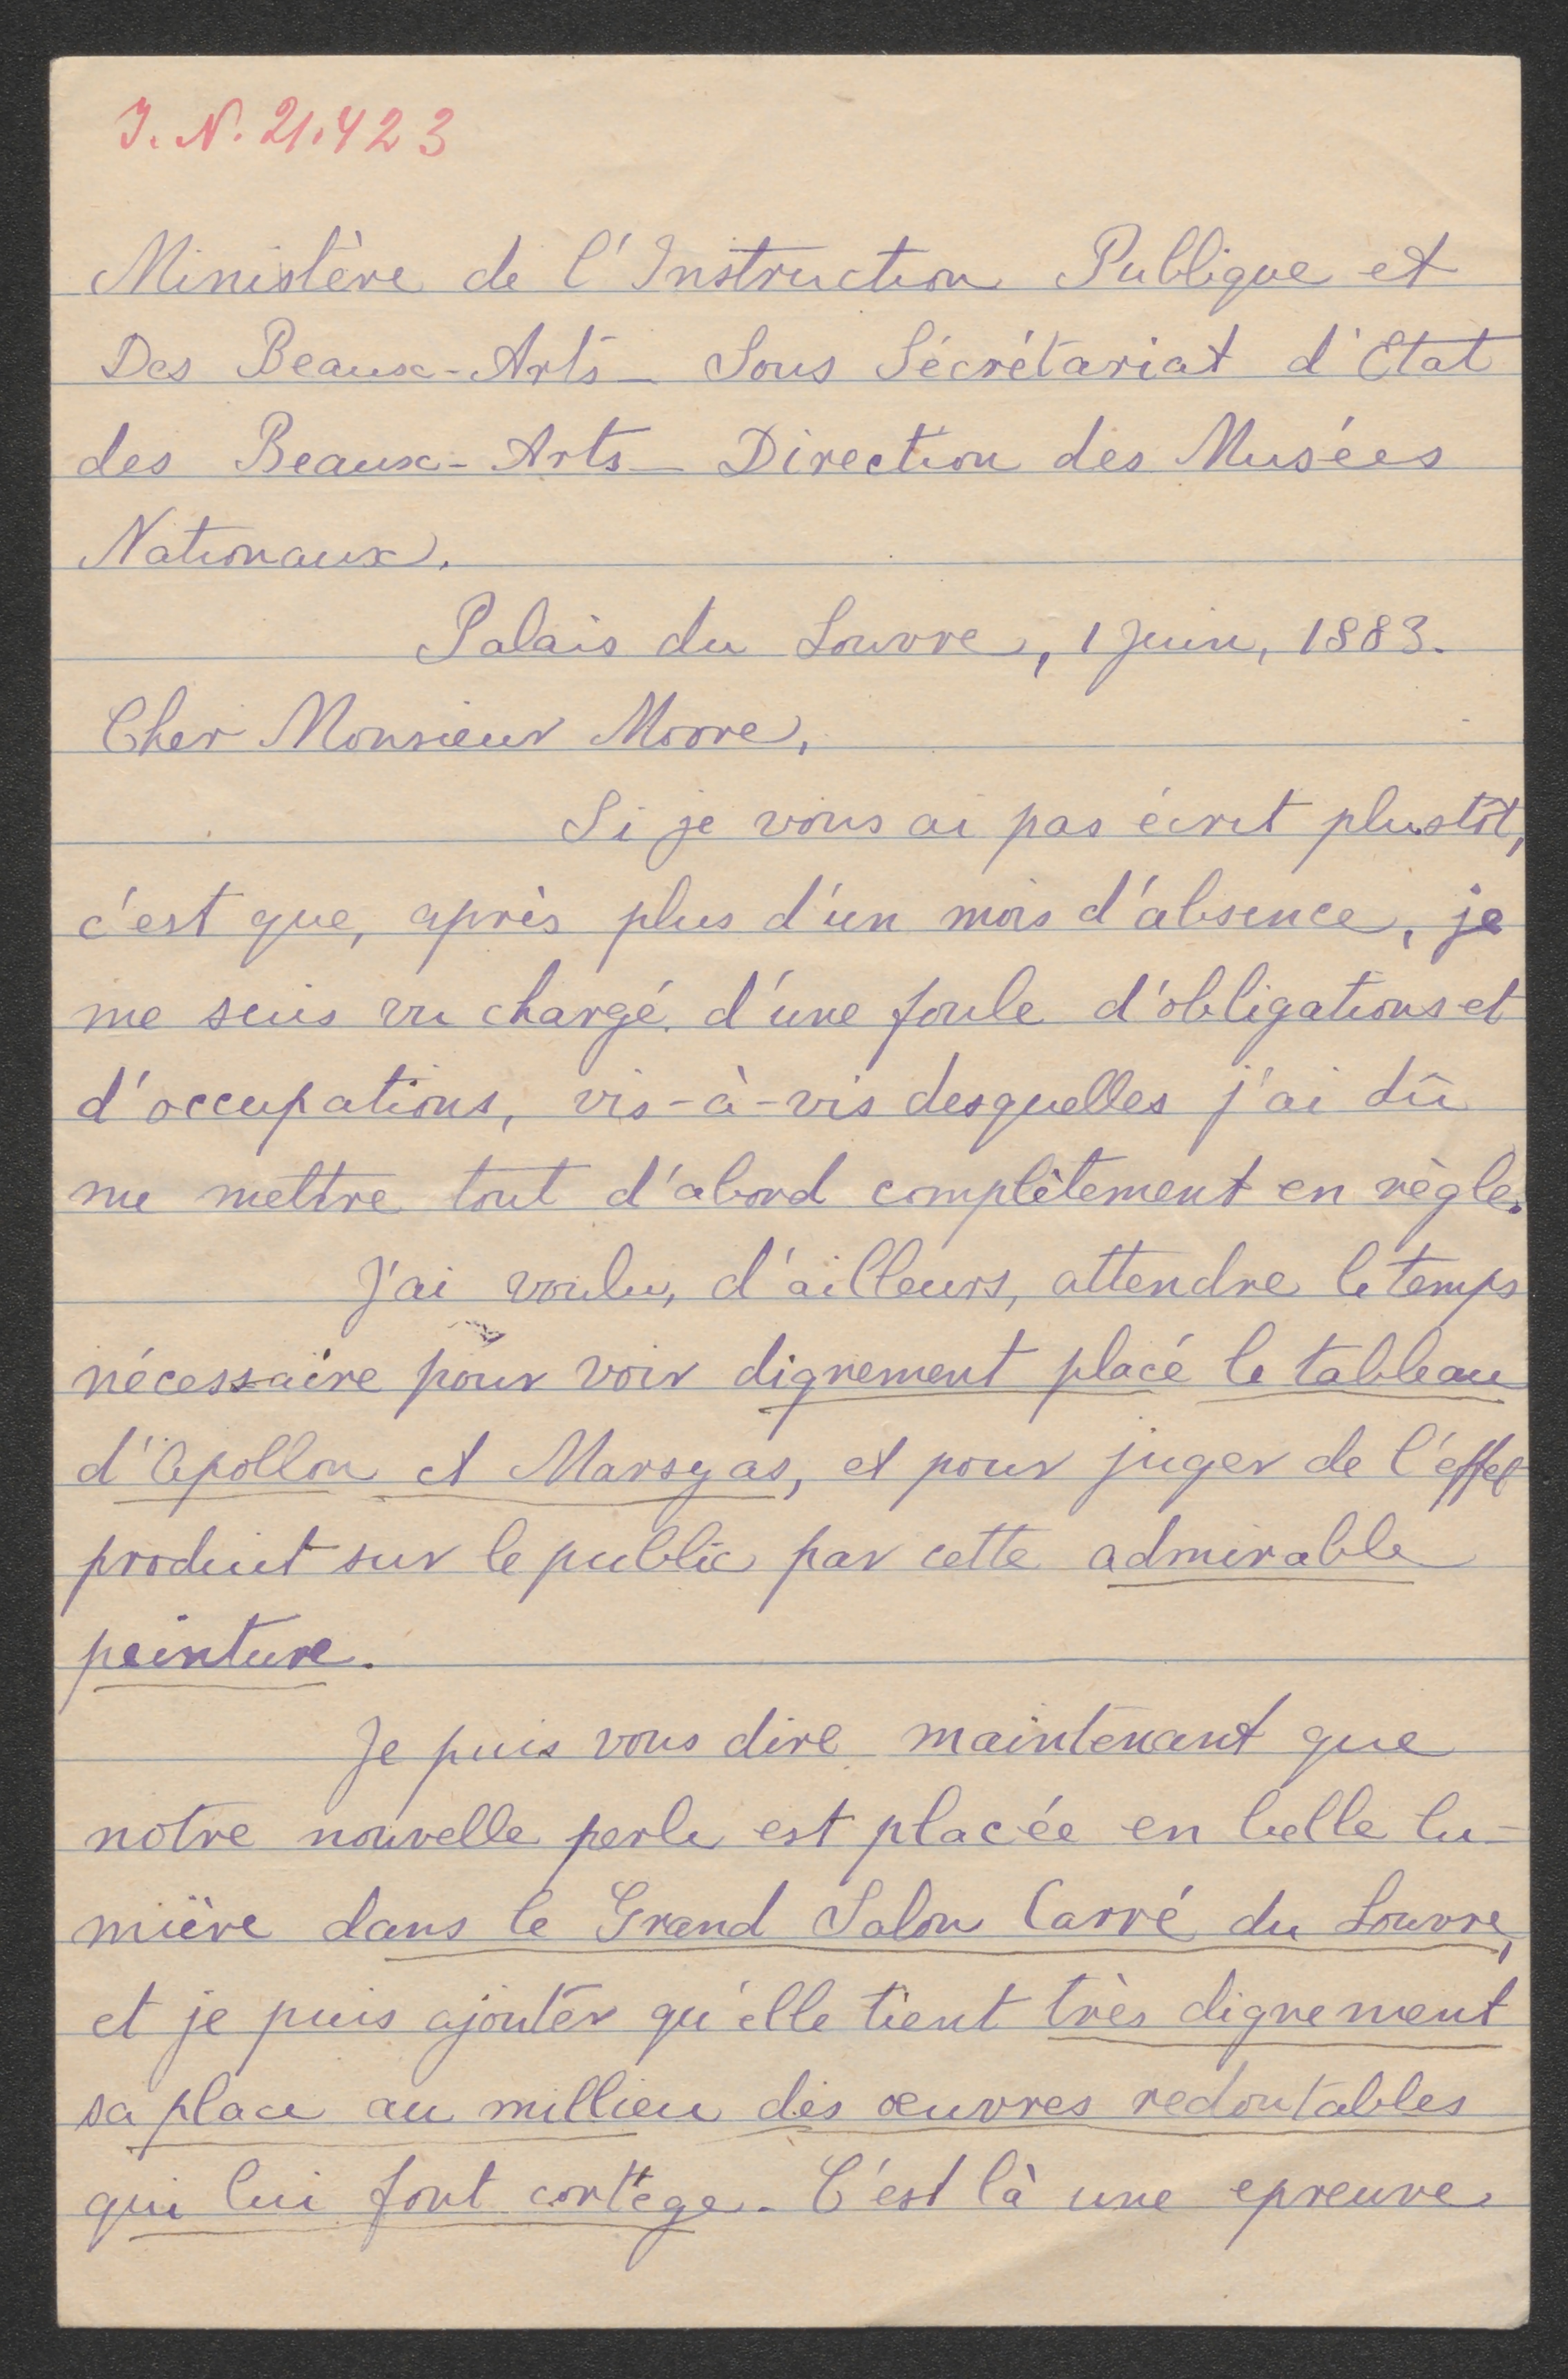 J. N. 21.423
Ministère de l'Instruction Publique et
Des Beaux-Arts - Sous Sécrétariat d'Etat
des Beaux-Arts - Direction des Musées
Nationaux.
Palais du Louvre, 1 Juin, 1883.
Cher Monsieur Moore,
Si je vous ai pas écrit plustôt,
c'est que, après plus d'un mois d'absence, je
me suis vu chargé d'une foule d'obligations et
d'occupations, vis-à-vis desquelles j'ai dû
me mettre tout d'abord complètement en règle.
J'ai voulu, d'ailleurs, attendre le temps
nécessaire pour voir dignement placé le tableau
d'Apollon et Marsyas, et pour juger de l'effet
produit sur le public par cette admirable
peinture.
Je puis vous dire maintenant que
notre nouvelle perle est placée en belle lu-
mière dans le Grand Salon Carré du Louvre,
et je puis ajouter qu'elle tient très dignement
sa place au millieu des œuvres redoutables
qui lui font cortège. C'est là une epreuve